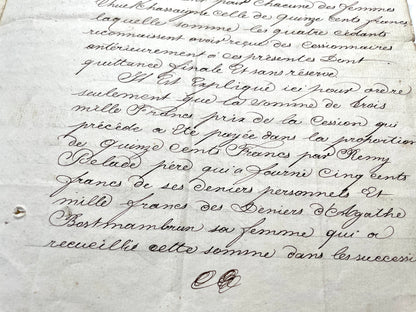 pour chacune des femmes
celle de quinze cents francs
laquelle somme les quatre cédants
reconnaissent avoir reçue des Cessionnaires
antérieurement à ces présentes Dont
quittance finale Et sans réserve
Il Est Expliqué ici pour ordre
seulement que la somme de trois
mille Francs prix de la Cession qui
précède a été payée dans la proportion
de Quinze Cents Francs par Remy
Delade père qui a fourni Cinq cents
francs de ses deniers personnels Et
mille francs des Deniers d'Agathe
Bostmambrun sa femme qui a
recueilli cette somme dans les successi